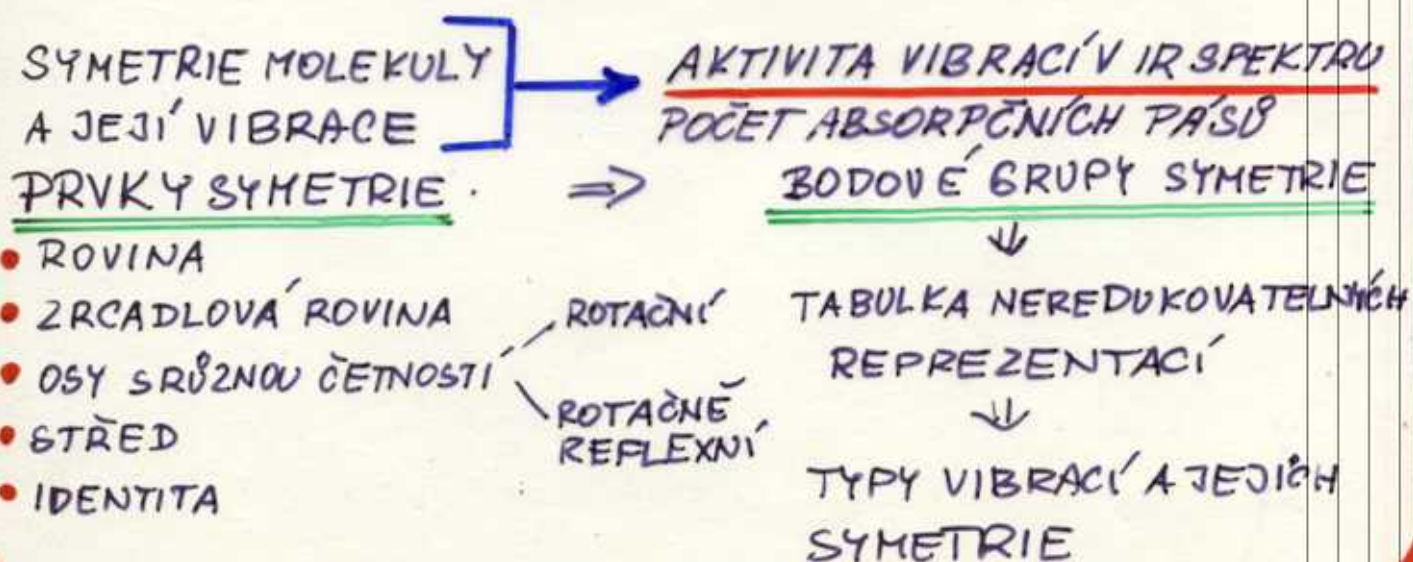 SYMETRIE MOLEKULY
A JEJÍ VIBRACE
AKTIVITA VIBRACÍ V IR SPEKTRU
POČET ABSORPČNÍCH PÁSŮ
PRVKY SYMETRIE ⇒ BODOVÉ GRUPY SYMETRIE
• ROVINA
• ZRCADLOVÁ ROVINA
• OSY S RŮZNOU ČETNOSTÍ
ROTAČNÍ
ROTAČNĚ
REFLEXNÍ
• STŘED
• IDENTITA
TABULKA NEREDUKOVATELNÝCH
REPREZENTACÍ
TYPY VIBRACÍ A JEJICH
SYMETRIE